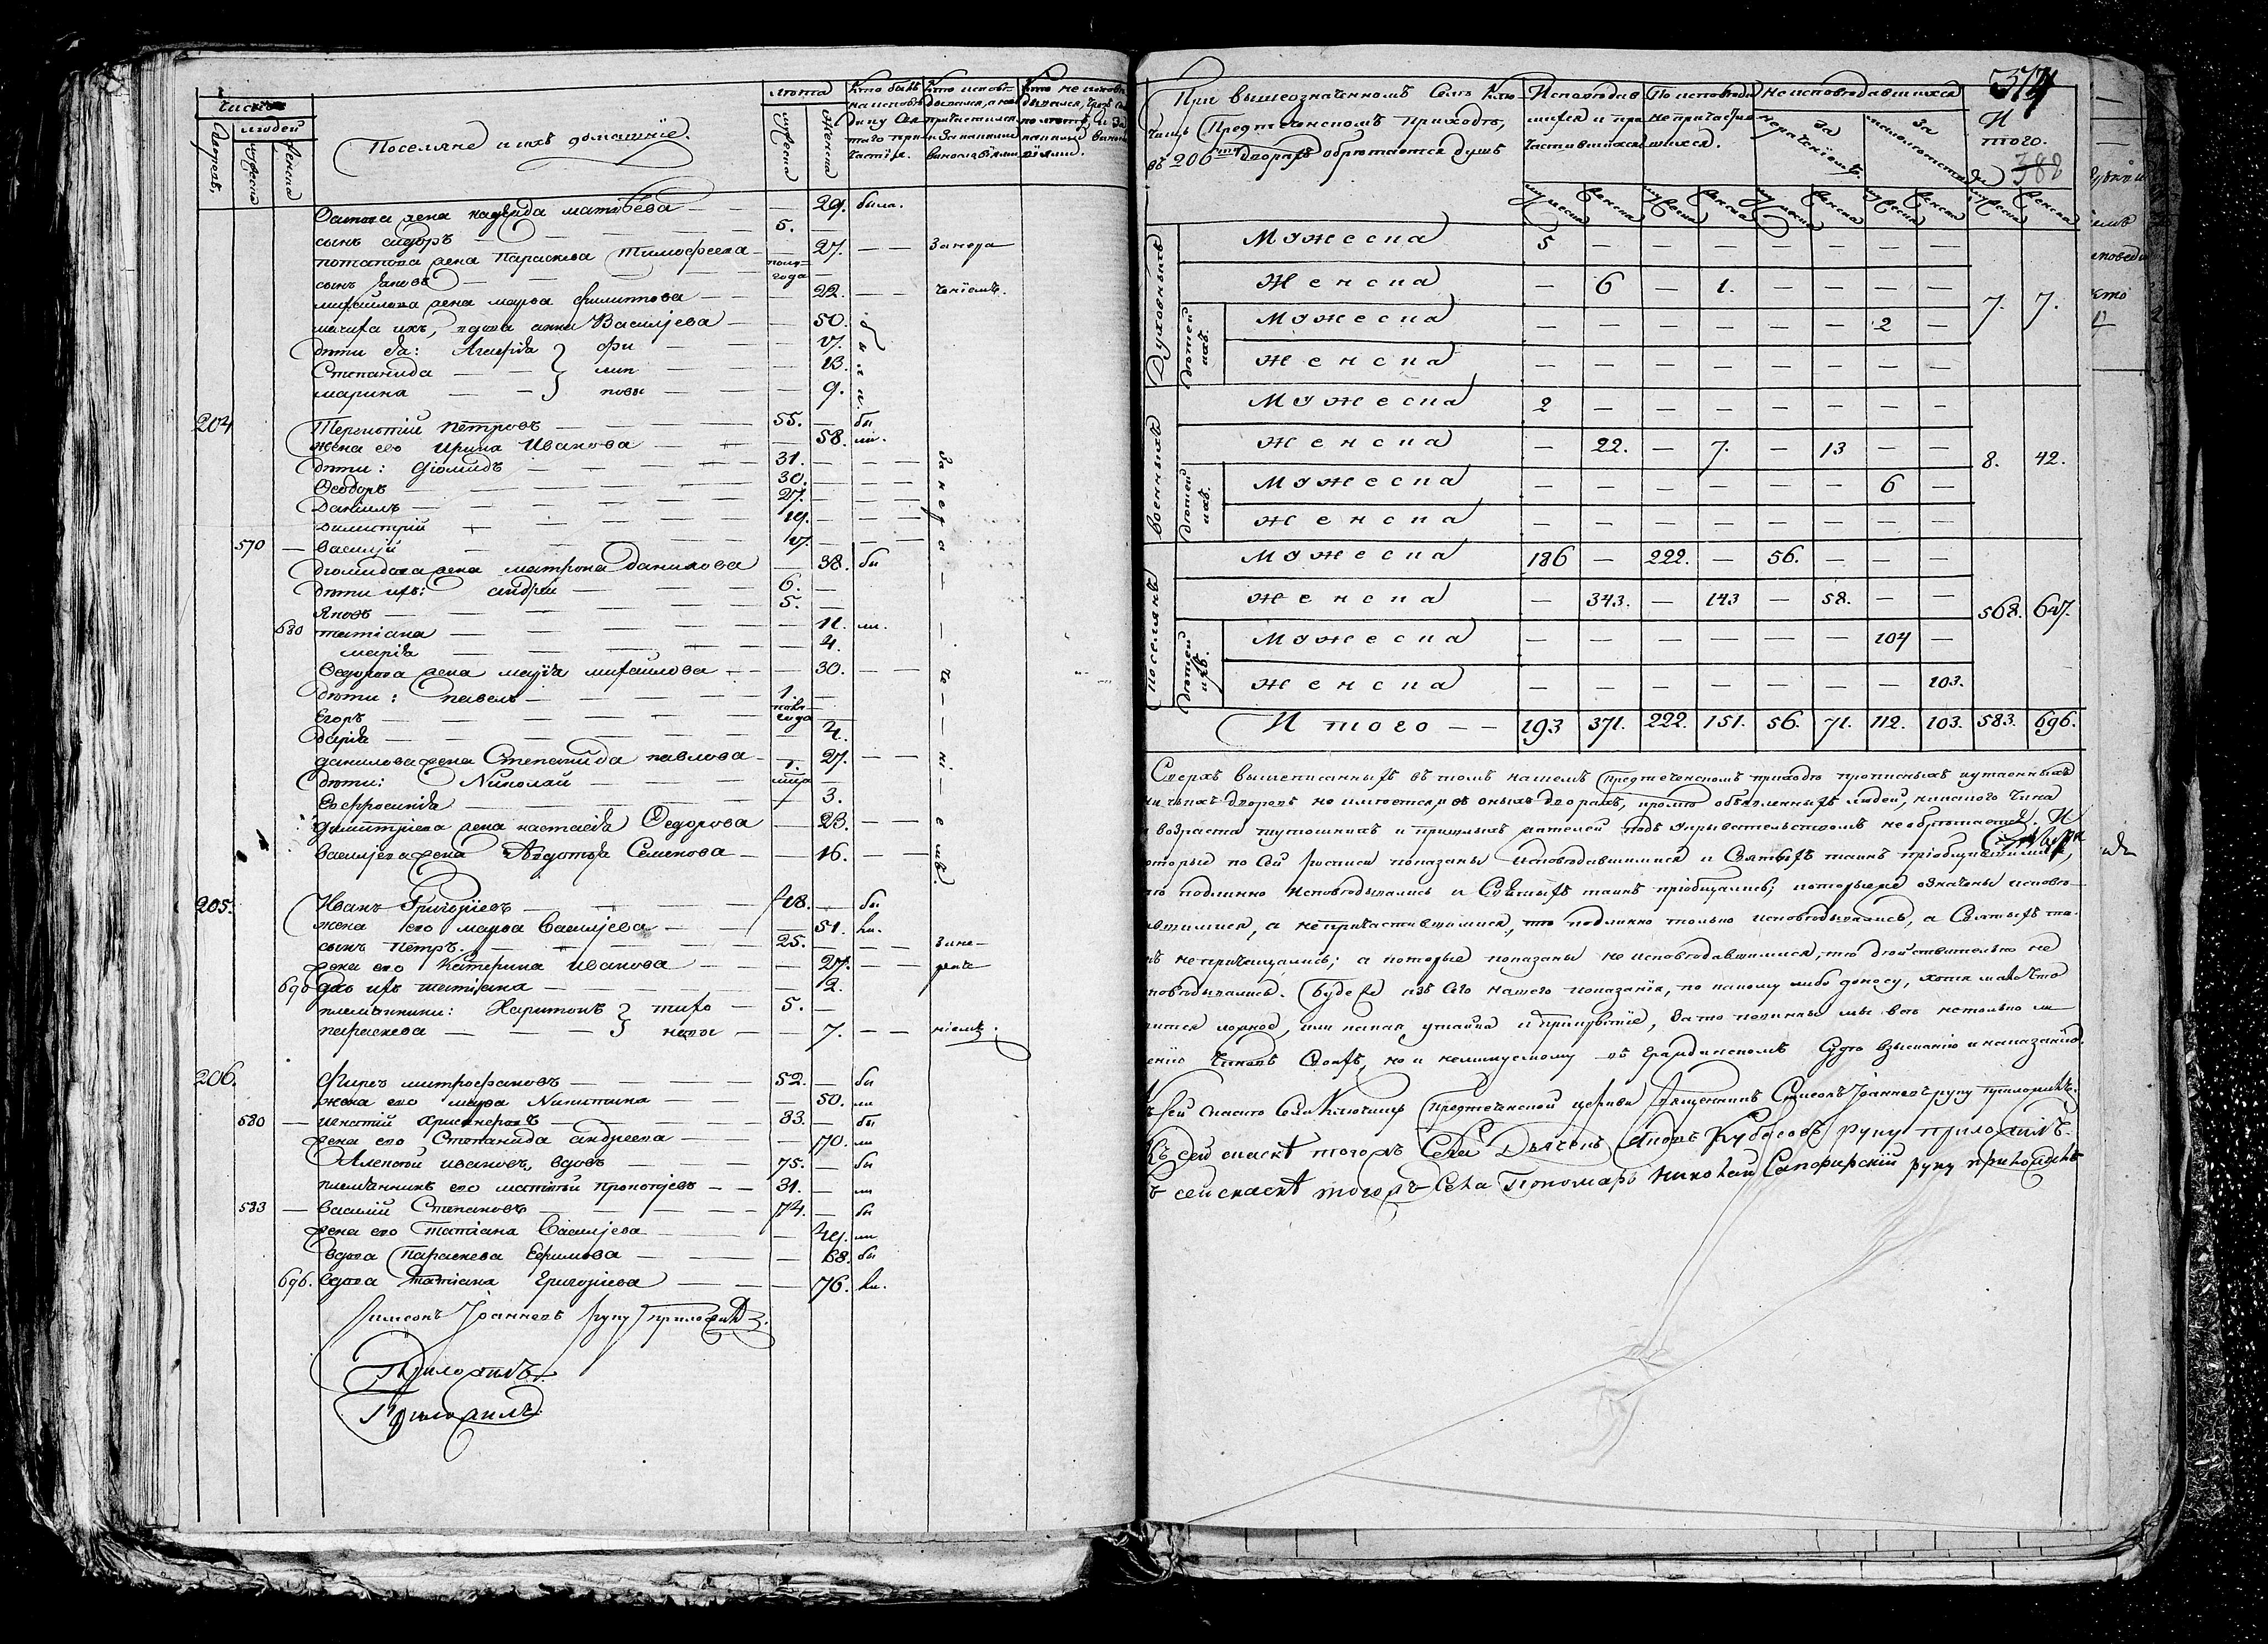 число
людей
Дворовъ.
мужеска
женска
Поселяне и ихъ домашнїе.
лѣта
мужеска
женска
Кто былъ на исповѣди и у святаго причастїя.
Кто исповѣдывался, а не причастился и за какими винословїями
Кто не исповѣдывался
жена надежда матвѣева — — 29. была.
сынъ сидоръ — 5. —
потапова жена Параскева Тимофеева — — 27. — — За нера
сынъ Яковъ — полугода —
михайлова жена марѳа филиппова — — 22. — — ченїемъ.
ихъ, вдова анна Васильева — — 50.
дѣти ея: Агафїя } фи — — 17.
Степанида — } лип — 13.
марина — } повы — 9.
204 Терентїй петровъ — 55. — бы
жена его Ирина Иванова — — 58. ли.
дѣти: дїомидъ — 31. — — —
Ѳеодоръ — 30. — — —
Данїилъ — 27. — — —
димитрїй — 19. — — —
570 — василїй — 17. — — —
дїомидова жена матрона данилова — 38. бы
дѣти ихъ: андрей — 6. —
Яковъ — 5. —
680 татїана — — 11. ли.
марїя — — 4.
Ѳедорова жена марїя михайлова — — 30. — —
дѣти: павелъ — 1. —
Егоръ — полгода —
дарїя — — 4.
данилова жена Степанида павлова — — 27. — —
дѣти: Николай — 1. —
Евфросинїя — — 3.
димитрїева жена настасїя Ѳедорова — 23. — —
васильева жена Авдотья Семенова — — 16. — —
За нераченїемъ.
205. Иванъ Григорїевъ — 48. — бы
жена его марѳа Васильева — — 51. ли.
сынъ Петръ. — 25. — — — За не-
жена его Катерина иванова — — 27. — — раче
690 дочь ихъ татїана — — 2.
племянники: Харитонъ } тихо — 5. —
параскева — — } новы — — 7. — — нїемъ.
206. Фирсъ митрофановъ — 52. — бы
жена его марѳа Никитина — — 50. ли
580 — игнатїй — 83. — бы
жена его Степанида андреева — — 70. ли
Алексѣй ивановъ, вдовъ — 75. — бы
племянникъ его матвѣй прокопьевъ — — 31. — ли
583 — василїй Степановъ — 74. — бы
жена его Татїана Васильева — — 49. ли
вдова Параскева Ефимова — — 68. бы
696. вдова Татїана Григорьева — — 76. ли.
Симеонъ Іоанновъ руку приложилъ.
Приложилъ.
Приложилъ.
514
388
При вышеозначенномъ Селѣ Клю-
чищъ Предтеченскомъ приходѣ,
въ 206ти дворахъ обрѣтается душъ
Исповѣдавшихся и причастившихся
По исповѣди не причастившихся.
Не исповѣдавшихся
За нераченїемъ.
За малолѣтствомъ
И того.
мужеска женска мужеска женска мужеска женска мужеска женска мужеска женска
Духовныхъ
Мужеска 5 — — — — — — —
Женска — 6 — 1. — — — —
7. 7.
дѣтей ихъ.
Мужеска — — — — — — 2 —
Женска — — — — — — — —
Военныхъ
Мужеска 2 — — — — — — —
Женска — 22. — 7. — 13 — —
8. 42.
дѣтей ихъ.
Мужеска — — — — — — 6 —
Женска — — — — — — — —
поселянъ
Мужеска 186 — 222. — 56. — — —
Женска — 343. — 143 — 58. — —
568. 647.
дѣтей ихъ.
Мужеска — — — — — — 104 —
Женска — — — — — — — 103.
И того — — 193 371. 222. 151. 56. 71. 112. 103. 583. 696.
Сверхъ вышеписанныхъ въ томъ нашемъ Предтеченскомъ приходѣ прописныхъ утаенныхъ
дворовъ не имѣется, и въ оныхъ дворахъ, кромѣ объявленныхъ людей, никакого чина
и возраста тутошнихъ и пришлыхъ жителей подъ укрывательствомъ не обрѣтается. И
которые по сей росписи показаны исповѣдавшимися и Святыхъ таинъ прїобщившимися,
подлинно исповѣдывались и Святыхъ таинъ прїобщались; которые же означены исповѣ-
давшимися, а непричастившимися, то подлинно только исповѣдывались, а Святыхъ та-
инъ непричащались; а которые показаны не исповѣдавшимися, то дѣйствительно не
исповѣдывались. Буде же изъ сего нашего показанїя, по какому либо доносу, хотя мало что
явится ложное, или какая утайка и прикрытїе, за то повинны мы всѣ нетолько ли-
шенїю чиновъ своихъ, но и неминуемому въ гражданскомъ судѣ взысканїю и наказанїю.
Къ сей сказкѣ Села Ключищъ Предтеченской церкви священникъ Симеонъ Іоанновъ руку приложилъ.
Къ сей сказкѣ тогожъ Села Дьячекъ Яковъ Кубасовъ руку приложилъ.
Къ сей сказкѣ тогожъ Села Пономарь Николай Сапфирскїй руку приложилъ